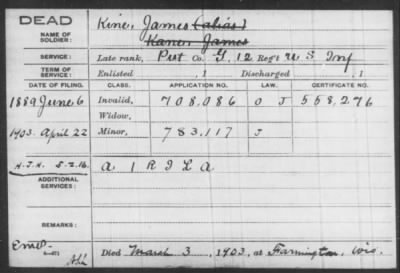 DEAD
NAME OF SOLDIER:
Kine, James (alias)
Kane, James
SERVICE:
Late rank, Pvt Co. G, 12 Reg't U S Inf
TERM OF SERVICE:
Enlisted , 1 Discharged , 1
DATE OF FILING. CLASS. APPLICATION NO. LAW. CERTIFICATE NO.
1889 June 6 Invalid, 708,086 O J 558,276
Widow,
1903 April 22 Minor, 783,117 J
5-2-16
ADDITIONAL SERVICES:
REMARKS:
Died March 3, 1903, at Farmington, Wis.